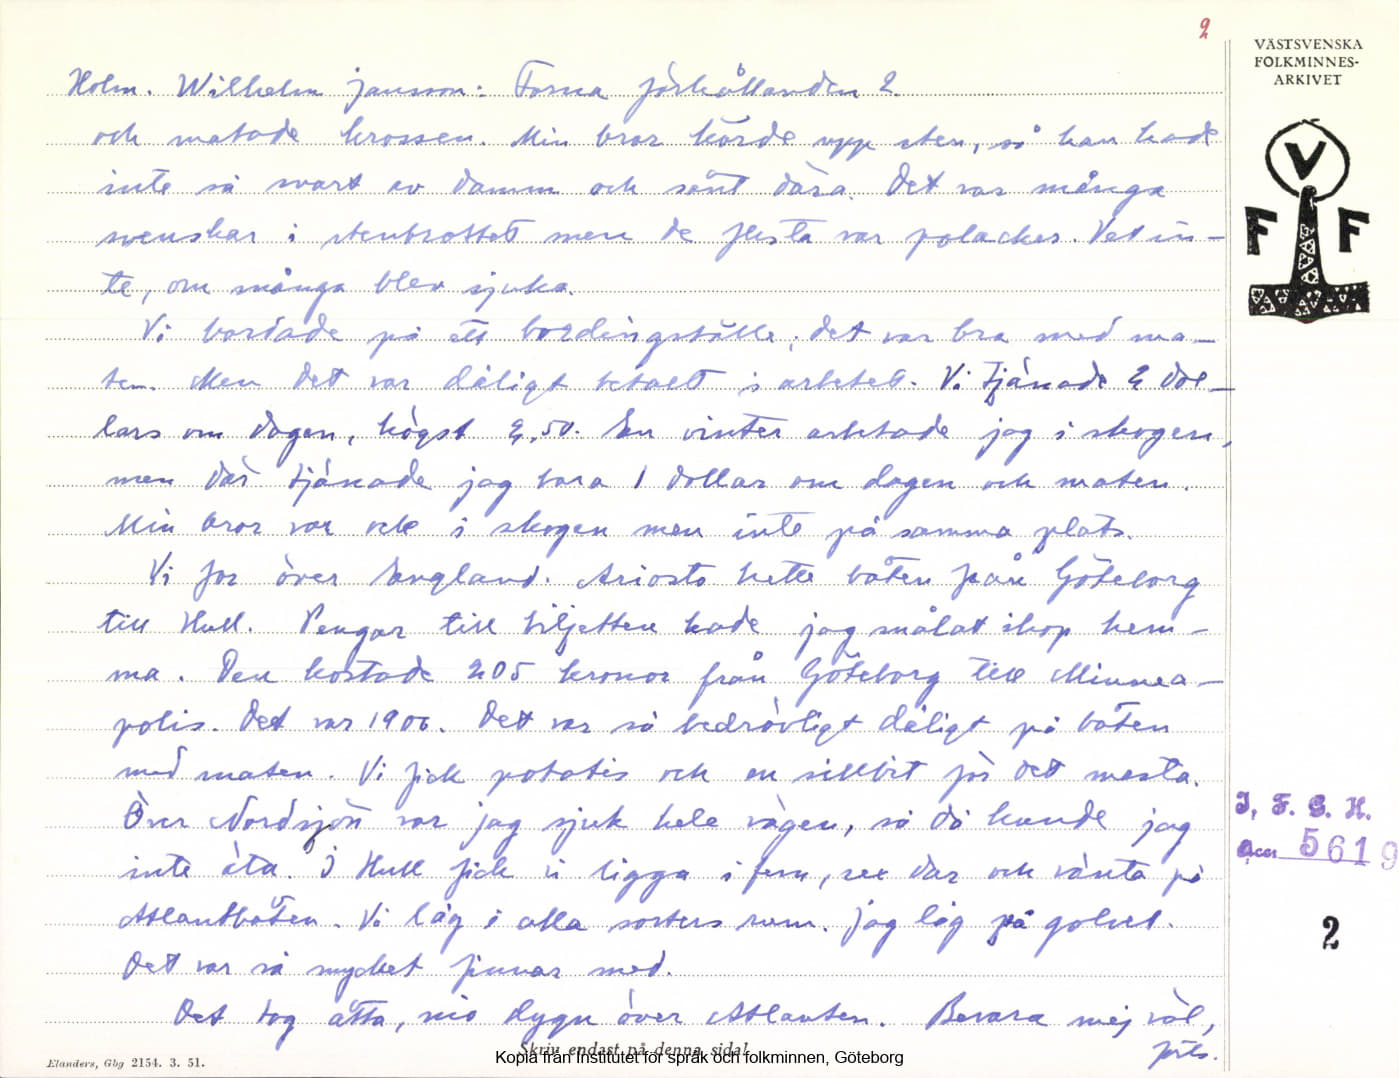 2
VÄSTSVENSKA
FOLKMINNES-
ARKIVET
Holm. Wilhelm Jansson: Forna förhållanden 2.
och matade krossen. Min bror körde upp sten, så han hade
inte så svart av damm och sånt dära. Det var många
svenskar i stenbrottet men de flesta var polacker. Vet in-
te, om många blev sjuka.
Vi bordade på ett bordingställe, det var bra med ma-
ten. Men det var dåligt betalt i arbetet. Vi tjänade 2 dol-
lars om dagen, högst 2,50. En vinter arbetade jag i skogen,
men där tjänade jag bara 1 dollar om dagen och maten.
Min bror var ock i skogen men inte på samma plats.
Vi for över England. Ariosto hette båten från Göteborg
till Hull. Pengar till biljetten hade jag målat ihop hem-
ma. Den kostade 205 kronor från Göteborg till Minnea-
polis. Det var 1906. Det var så bedrövligt dåligt på båten
med maten. Vi fick potatis och en sillbit för det mesta.
Över Nordsjön var jag sjuk hela vägen, så då kunde jag
inte äta. I Hull fick vi ligga i fem, sex dar och vänta på
Atlantbåten. Vi låg i alla sorters rum. Jag låg på golvet.
Det var så mycket finnar med.
Det tog åtta, nio dygn över Atlanten. Bevara mej väl,
V
F F
I. F. G. H.
acc 5619
2
Skriv endast på denna sida!
Elanders, Gbg 2154. 3. 51.
Kopia från Institutet för språk och folkminnen, Göteborg